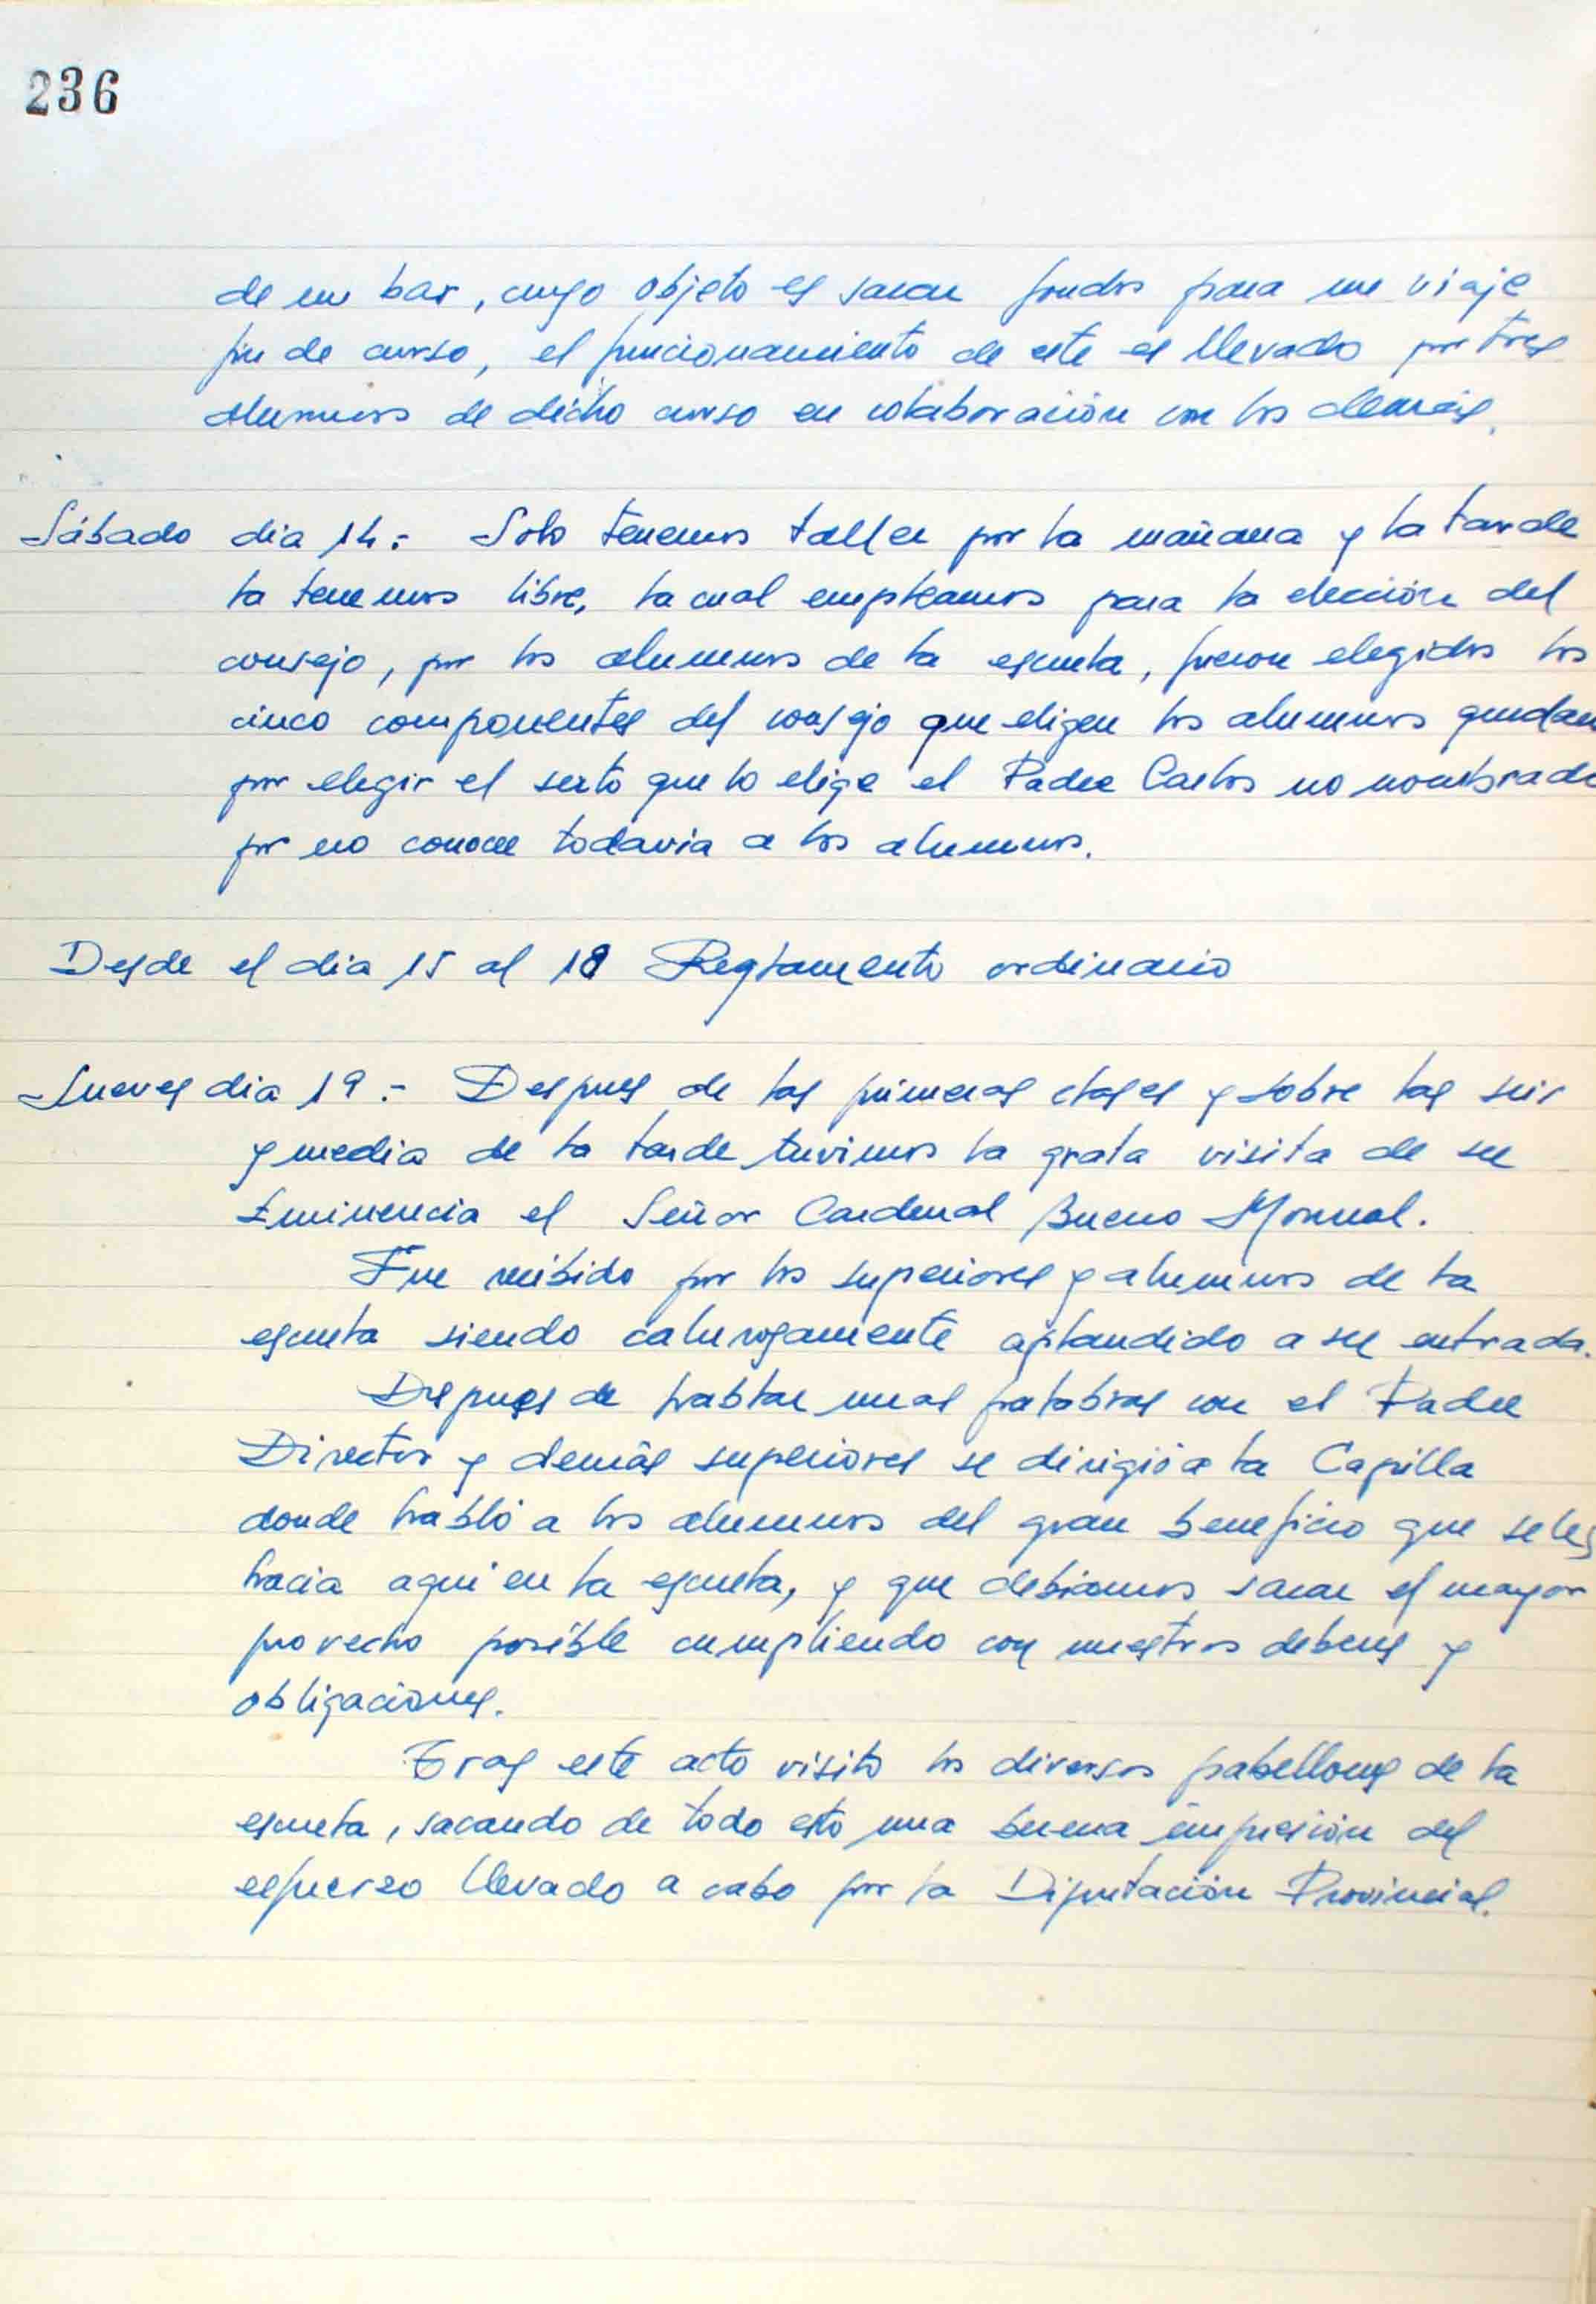 236
de un bar, cuyo objeto es sacar fondos para un viaje
fin de curso, el funcionamiento de este es llevado por tres
alumnos de dicho curso en colaboración con los demás.
Sábado dia 14.- Solo tenemos taller por la mañana y la tarde
la tenemos libre, la cual empleamos para la elección del
consejo, por los alumnos de la escuela, fueron elegidos los
cinco componentes del consejo que eligen los alumnos quedan
por elegir el sexto que lo elige el Padre Carlos no nombrado
por no conocer todavia a los alumnos.
Desde el dia 15 al 18 Reglamento ordinario
Jueves dia 19.- Despues de las primeras clases y sobre las seis
y media de la tarde tuvimos la grata visita de su
Eminencia el Señor Cardenal Bueno Monreal.
Fue recibido por los superiores y alumnos de la
escuela siendo calurosamente aplaudido a su entrada.
Despues de hablar unas palabras con el Padre
Director y demás superiores se dirigió a la Capilla
donde habló a los alumnos del gran beneficio que se les
hacia aqui en la escuela, y que debiamos sacar el mayor
provecho posible cumpliendo con nuestros deberes y
obligaciones.
Tras este acto visito los diversos pabellones de la
escuela, sacando de todo esto una buena impresión del
esfuerzo llevado a cabo por la Diputación Provincial.